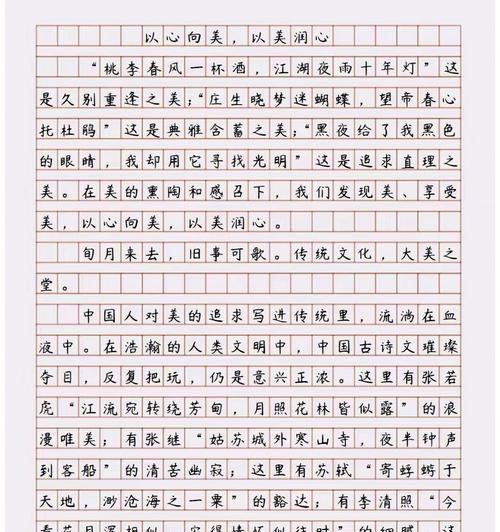 以心向美，以美润心
“桃李春风一杯酒，江湖夜雨十年灯”这
是久别重逢之美；“庄生晓梦迷蝴蝶，望帝春心
托杜鹃”这是典雅含蓄之美；“黑夜给了我黑色
的眼睛，我却用它寻找光明”这是追求真理之
美。在美的熏陶和感召下，我们发现美、享受
美，以心向美，以美润心。
旬月来去，旧事可歌。传统文化，大美之
堂。
中国人对美的追求写进传统里，流淌在血
液中。在浩瀚的人类文明中，中国古诗文璀璨
夺目，反复把玩，仍是意兴正浓。这里有张若
虎“江流宛转绕芳甸，月照花林皆似露”的浪
漫唯美；有张继“姑苏城外寒山寺，夜半钟声
到客船”的清苦幽寂；这里有苏轼“寄蜉蝣于
天地，渺沧海之一粟”的豁达；有李清照“今
看花月浑相似，安得情怀似往时”的细腻